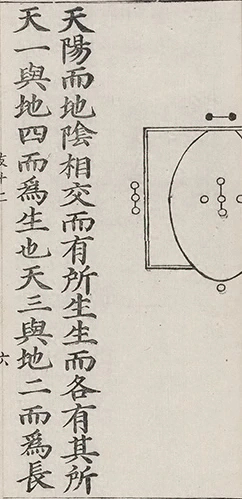 天陽而地陰相交而有所生生而各有其所
天一與地四而為生也天三與地二而為長
六